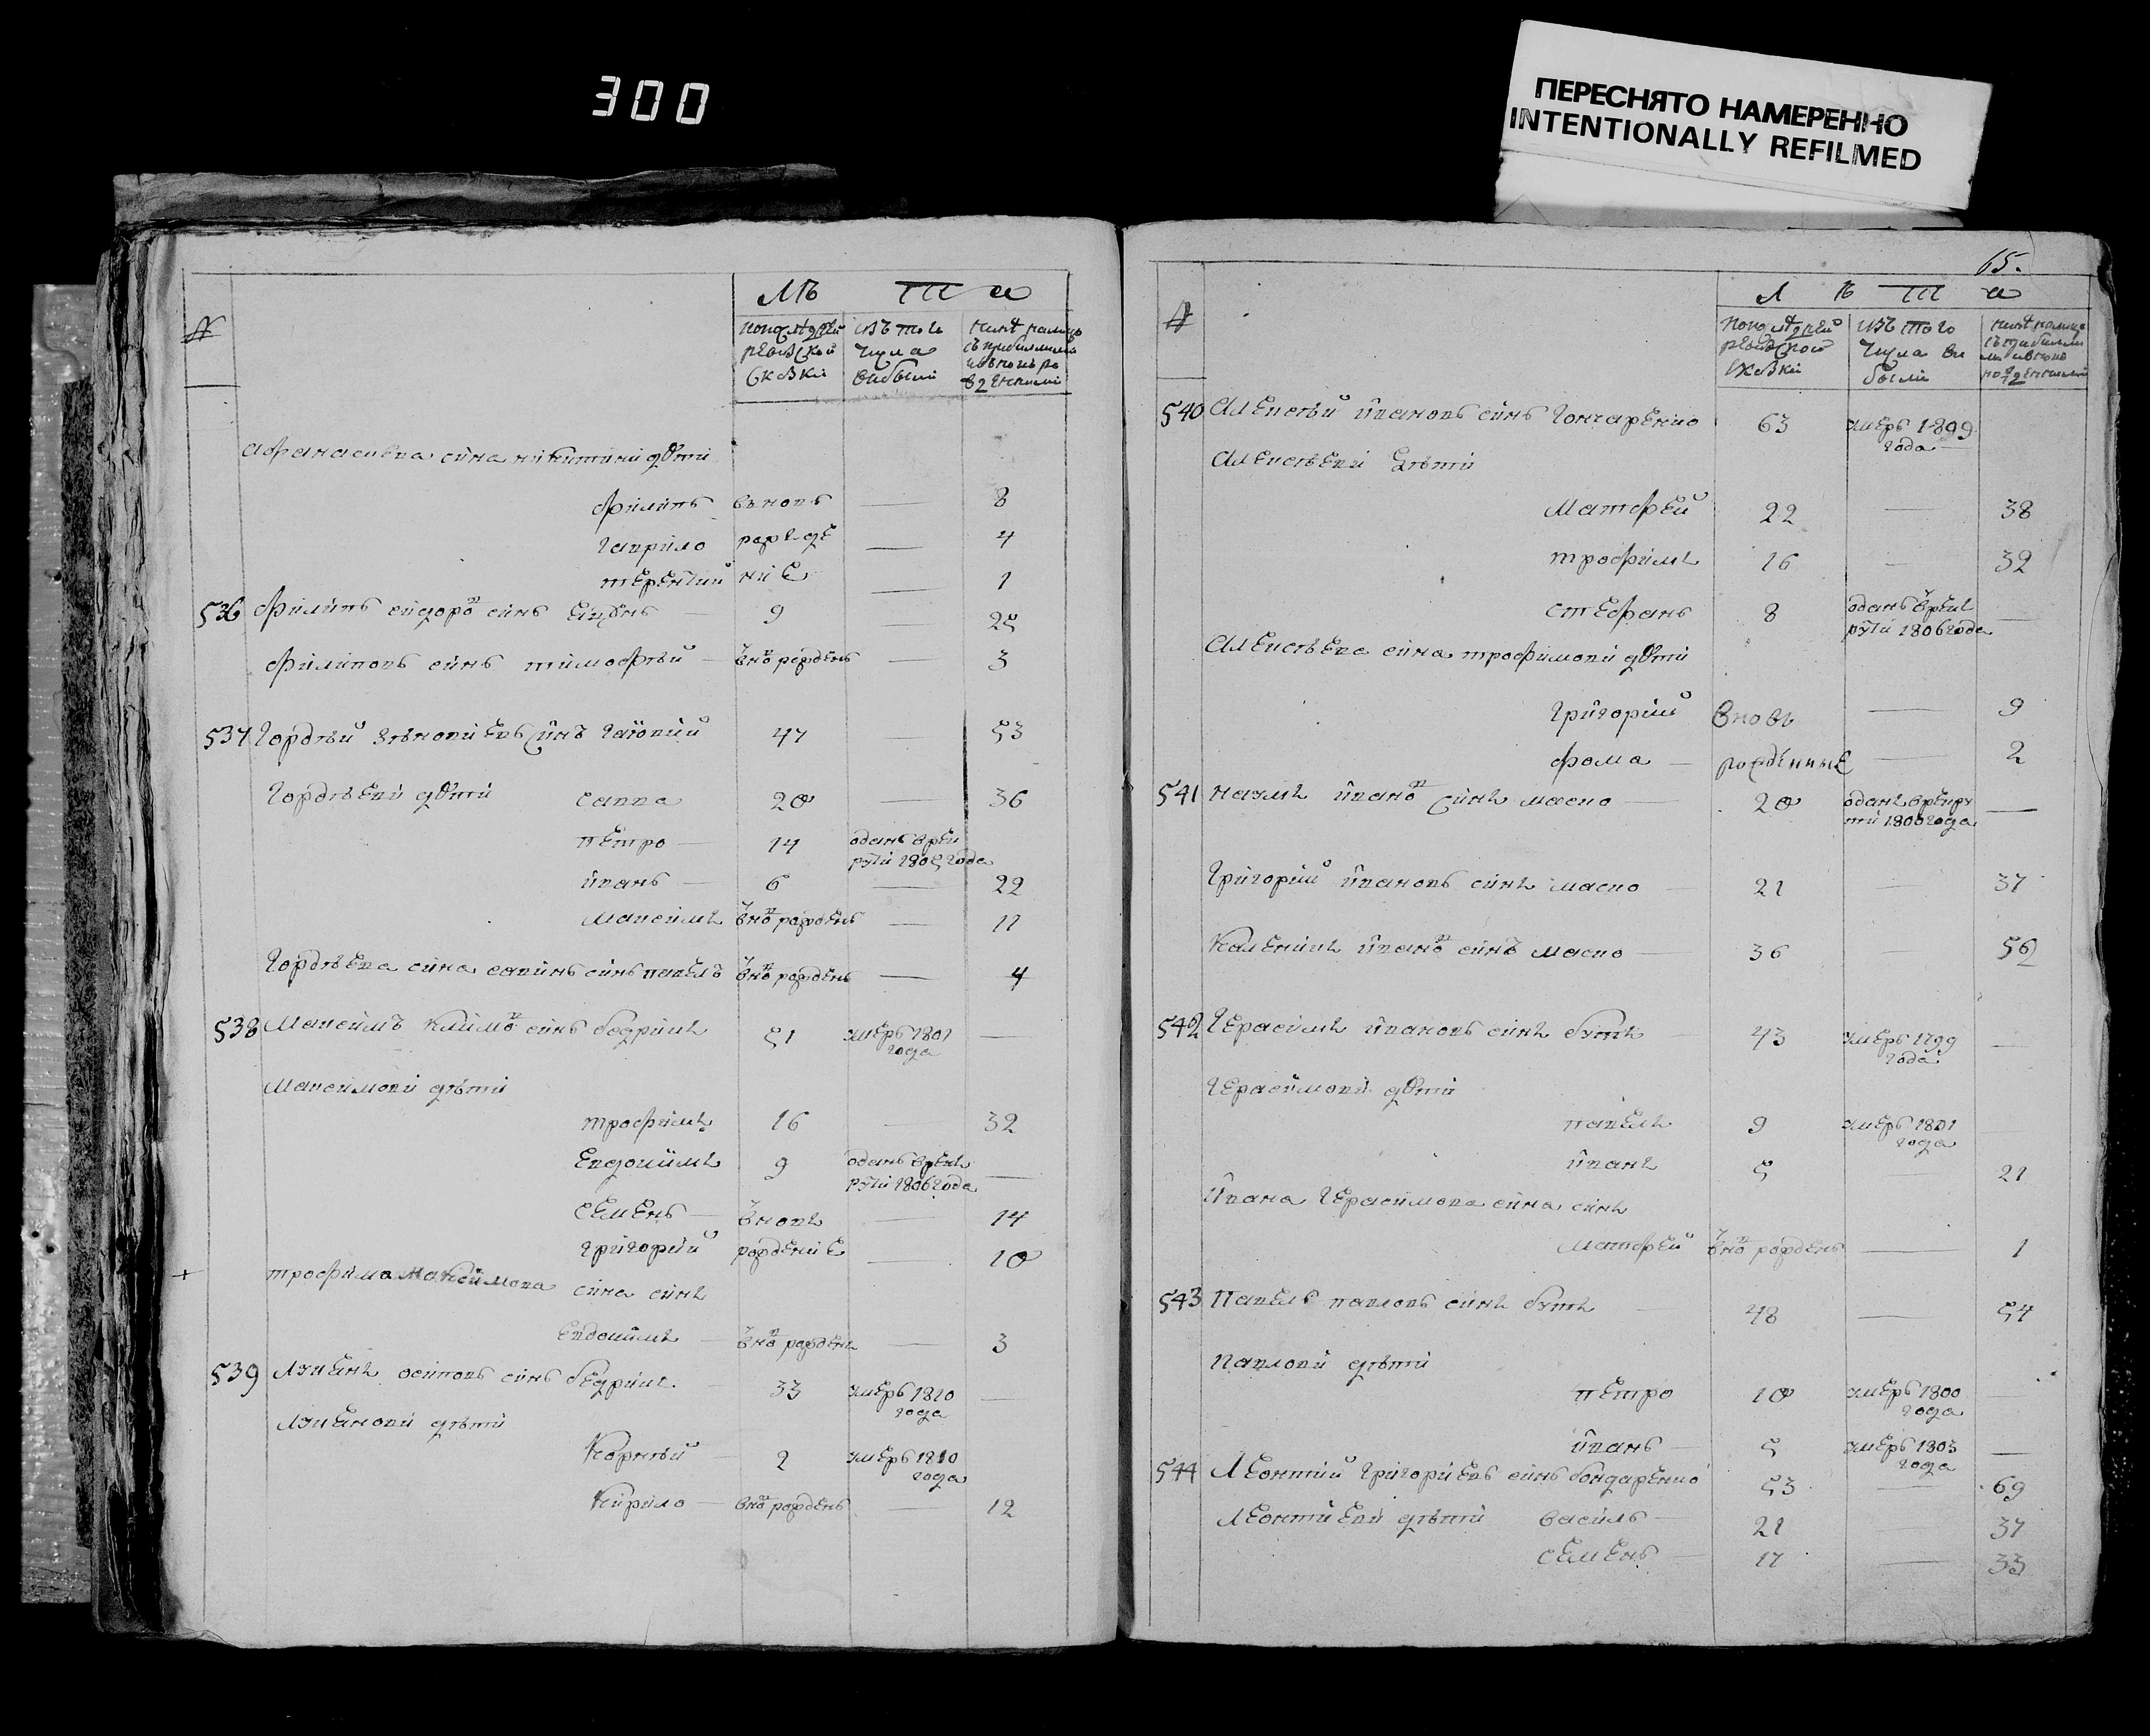 300
ПЕРЕСНЯТО НАМЕРЕННО
INTENTIONALLY REFILMED
№
лѣ та
изъ того числа выбыли
Афанасиева сина никитини дѣти
филипъ вновь — 8
гаврило — 4
терентий — 1
536 филипъ сидоровъ синъ 9 — 25
филиповъ синъ тимофѣй — вновь рожденъ — 3
537 Гордѣй зѣновиевъ синъ 47 — 53
Гордѣеви дѣти савва 20 — 36
петро — 14 отданъ в рекруты 1805 года
иванъ — 6 — 22
максимъ вновь рожденъ — 11
Гордѣева сина савинъ синъ павелъ вновь рожденъ — 4
538 Максимъ климовъ синъ бедримъ 51 умеръ 1801 года —
Максимови дѣти
трофимъ 16 — 32
Евдокимъ 9 отданъ в рекруты 1806 года —
семенъ — вновь — 14
григорий рождение — 10
+ трофима Максимова сина синъ
Евдокимъ — вновь рожденъ — 3
539 Лукянъ осиповъ синъ бедримъ 33 умеръ 1810 года —
Лукянови дѣти
Корнѣй — 2 умеръ 1810 года
Кирило — вновь рожденъ — 12
65.
№
Л ѣ т а
изъ того числа выбыли
540 Алексѣй ивановъ синъ Гончаренко 63 умеръ 1809 года
Алексѣеви дѣти
Матфей 22 — 38
трофимъ 16 — 32
стефанъ 8 отданъ в рекруты 1806 года —
Алексѣева сина трофимови дѣти
Григорий вновь — 9
фома — рожденные — 2
541 наумъ ивановъ синъ маско — 20 отданъ в рекруты 1800 года —
Григорий ивановъ синъ маско — 21 — 37
ивановъ синъ маско — 36 — 52
542 Герасимъ ивановъ синъ бутъ — 43 умеръ 1799 года —
Герасимови дѣти
павелъ 9 умеръ 1801 года —
иванъ 5 — 21
ивана Герасимова сина синъ
Матфей вновь рожденъ — 1
543 Павелъ павловъ синъ бутъ — 48 — 54
Павлови дѣти
петро 10 умеръ 1800 года —
иванъ — 5 умеръ 1803 года —
544 Леонтий григориевъ синъ бондаренко 53 — 69
Леонтиеви дѣти василь — 21 — 37
семенъ — 17 — 33